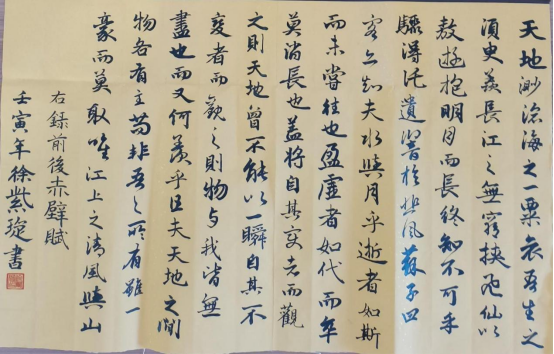 天地渺滄海之一粟哀吾生之
須臾羨長江之無窮挾飛仙以
敖遊抱明月而長終知不可乎
驟得託遺響於悲風蘇子曰
客亦知夫水與月乎逝者如斯
而未嘗往也盈虛者如代而卒
莫消長也蓋將自其变者而觀
之則天地曾不能以一瞬自其不
变者而觀之則物与我皆無
盡也而又何羨乎且夫天地之間
物各有主苟非吾之所有雖一
豪而莫取唯江上之清風與山
右錄前後赤壁賦
壬寅年徐紫璇書